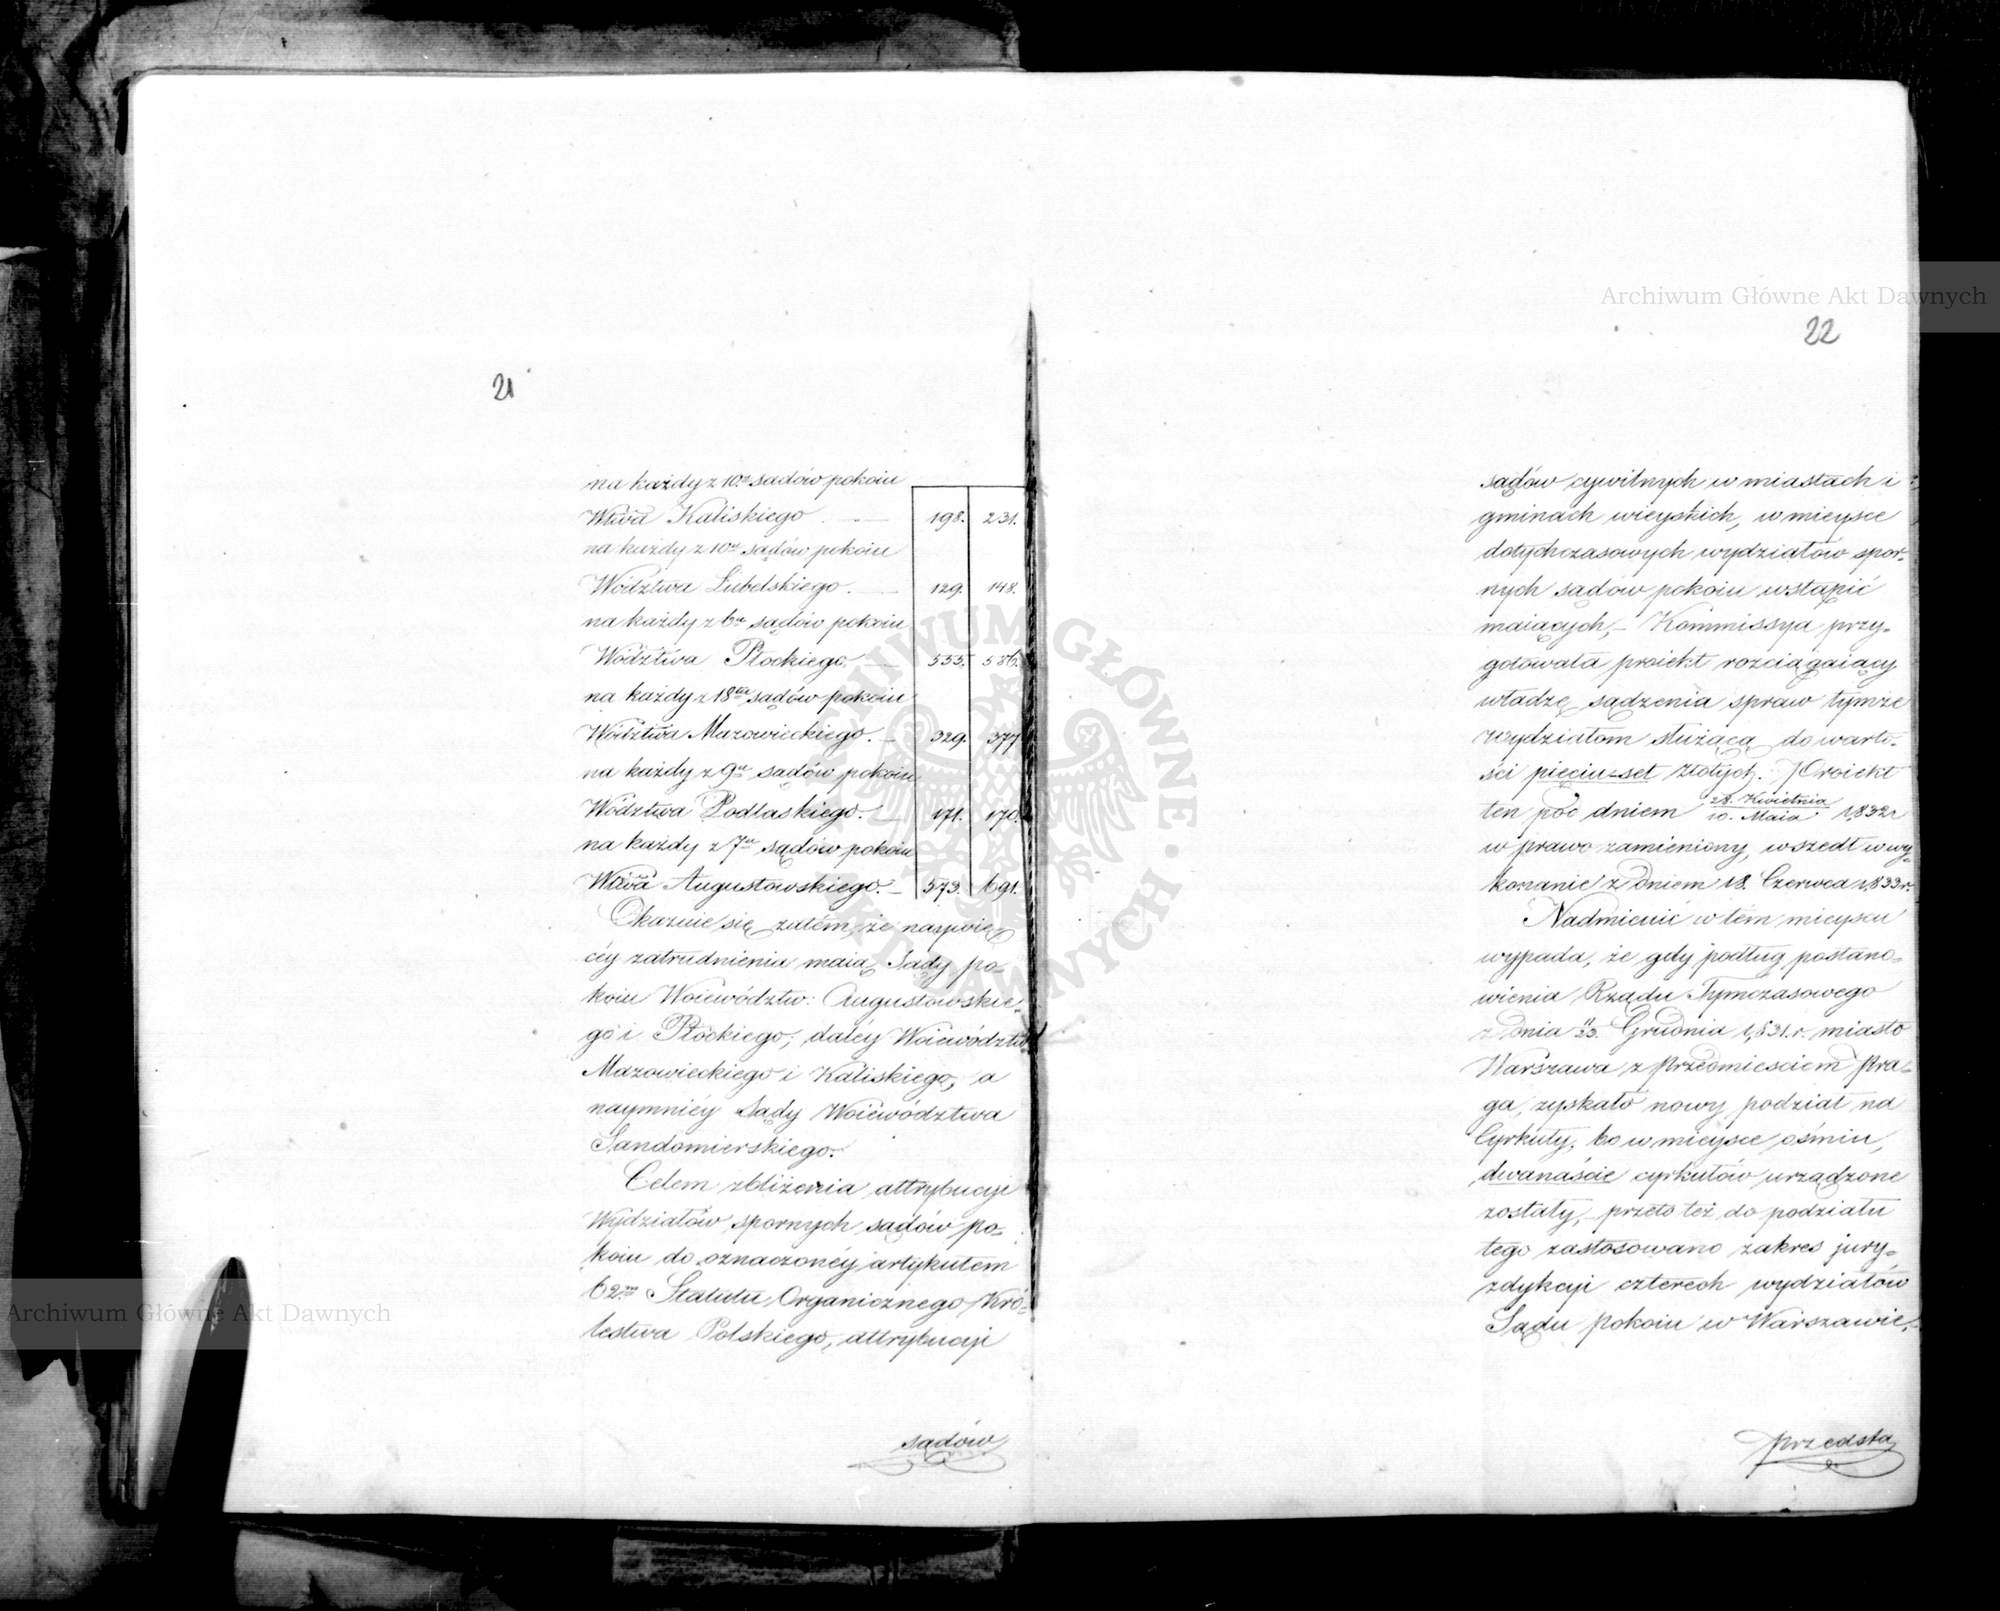 21
na każdy z 10u sądów pokoiu
Wtwa Kaliskiego 198. 231.
na każdy z 10u sądów pokoiu
Wództwa Lubelskiego. 129. 148.
na każdy z 6u sądów pokoiu
Wództwa Płockiego. 533. 586.
na każdy z 18tu sądów pokoiu
Wództwa Mazowieckiego. 329. 377.
na każdy z 9u sądów pokoiu
Wództwa Podlaskiego. 171. 170.
na każdy z 7u sądów pokoiu
Wtwa Augustowskiego. 573. 691.
Okazuie się zatem, że naywię-
céy zatrudnienia maią Sądy po-
koiu Woiewództw: Augustowskie-
go i Płockiego; daléy Woiewództw
Mazowieckiego i Kaliskiego, a
naymniéy Sądy Woiewództwa
Sandomierskiego.
Celem zbliżenia attrybucyi
Wydziałów spornych sądów po-
koiu do oznaczonéy artykułem
62m Statutu Organicznego Kró-
lestwa Polskiego, attrybucyi
sądów
Archiwum Główne Akt Dawnych
22
sądów cywilnych w miastach i
gminach wieyskich, w mieysce
dotychczasowych wydziałów spor-
nych sądów pokoiu wstąpić
maiących, – Kommissya przy-
gotowała proiekt rozciągaiący
władzę sądzenia spraw tymże
wydziałom służącą do warto-
ści pięciu-set złotych. Proiekt
ten pod dniem 28. Kwietnia/10. Maia 1832 r
w prawo zamieniony, wszedł w wy-
konanie z dniem 18. Czerwca 1833 r.
Nadmienić w tém mieyscu
wypada, że gdy podług postano-
wienia Rządu Tymczasowego
z dnia 11/23. Grudnia 1831. r. miasto
Warszawa z Przedmieściem Pra-
ga, zyskało nowy podział na
Cyrkuły, bo w mieysce ośmiu,
dwanaście cyrkułów urządzone
zostały, – przeto też do podziału
tego zastosowano zakres jury-
zdykcyi czterech wydziałów
Sądu pokoiu w Warszawie.
przedsta
Archiwum Główne Akt Dawnych
ARCHIWUM GŁÓWNE AKT DAWNYCH